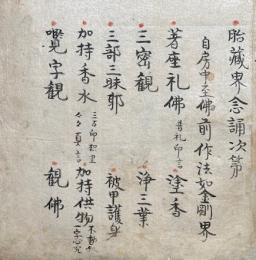 胎蔵界念誦次第
自房中至佛前作法如金剛界
著座礼佛 普礼印言 塗香
三密觀 淨三業
三部三昧耶 被甲護身
加持香水 加持供物
覽字觀 觀佛